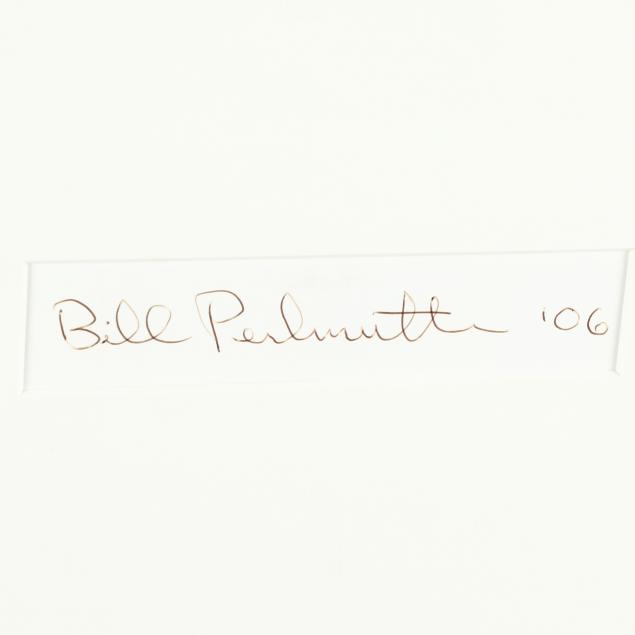 Bill Perlmutter '06